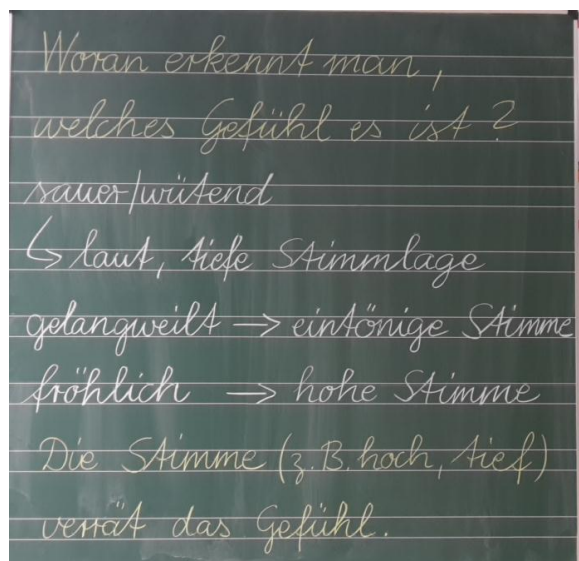 Woran erkennt man,
welches Gefühl es ist?
sauer/wütend
↳ laut, tiefe Stimmlage
gelangweilt → eintönige Stimme
fröhlich → hohe Stimme
Die Stimme (z.B. hoch, tief)
verrät das Gefühl.